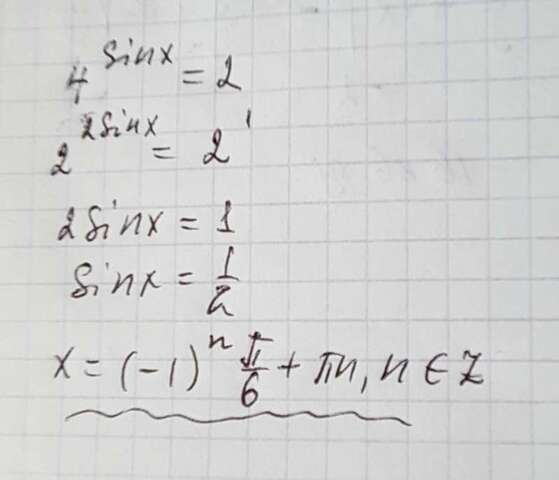 4^sinx = 2
2^2sinx = 2^1
2sinx = 1
sinx = 1/2
x = (-1)^n π/6 + πn, n ∈ Z